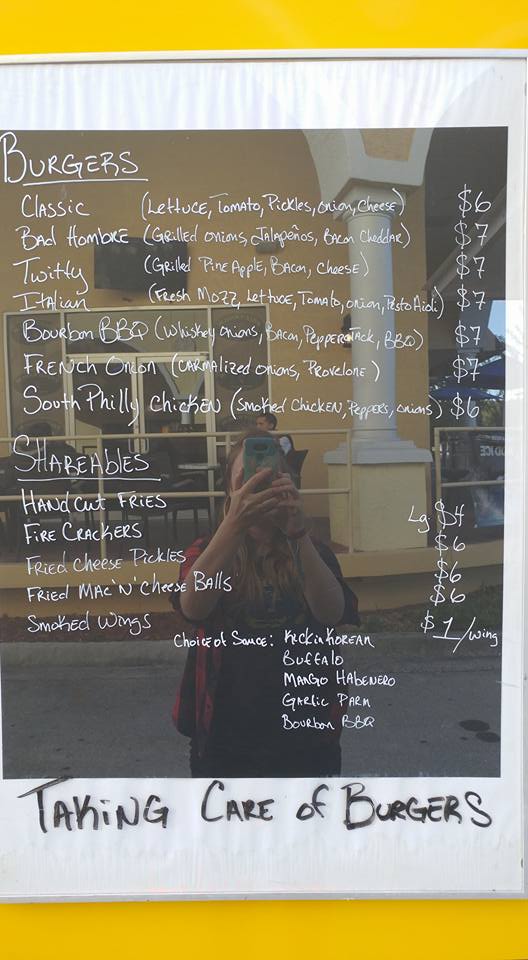 BURGERS
Classic (Lettuce, Tomato, Pickles, onion, Cheese) $6
Bad Hombre (Grilled onions, Jalapeños, Bacon Cheddar) $7
Twitty (Grilled PineApple, Bacon, Cheese) $7
Italian (Fresh Mozz, Lettuce, Tomato, onion, Pesto Aioli) $7
Bourbon BBQ (Whiskey onions, Bacon, PepperJack, BBQ) $7
French Onion (Carmalized onions, Provelone) $7
South Philly Chicken (Smoked Chicken, Peppers, onions) $6
SHAREABLES
Handcut Fries Lg $4
Fire Crackers $6
Fried Cheese Pickles $6
Fried Mac 'N' Cheese Balls $6
Smoked Wings $1/wing
Choice of Sauce: Kickin Korean
Buffalo
Mango Habenero
Garlic Parm
Bourbon BBQ
TAKING CARE of BURGERS